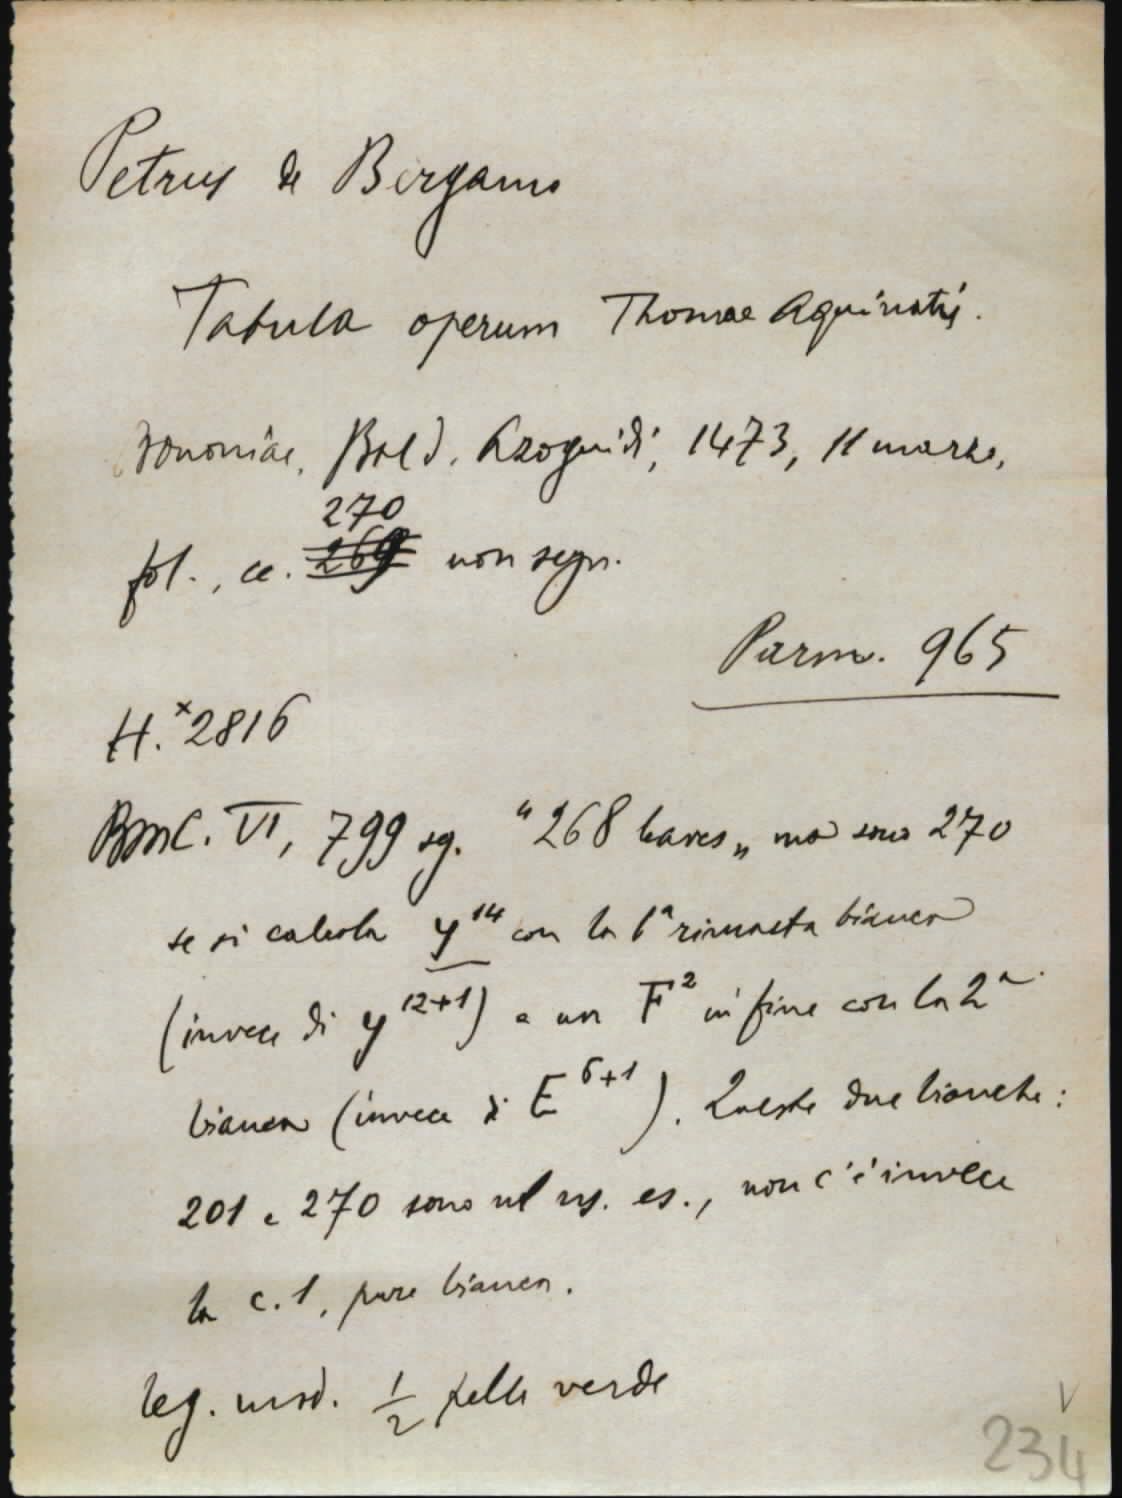 Petrus de Bergamo
Tabula operum Thomae Aquinatis.
Bononiae, Bald. Azoguidi, 1473, 11 marzo,
270
fol., cc. 269 non segn.
Parm. 965
H.*2816
BMC. VI, 799 sg. "268 leaves„ ma sono 270
se si calcola y¹⁴ con la 1ª rimasta bianca
(invece di y¹²⁺¹) e un F² in fine con la 2ª
bianca (invece di E⁶⁺¹). Queste due bianche:
201 e 270 sono nel ns. es., non c'è invece
la c. 1, pure bianca.
leg. mod. ½ pelle verde
V
234